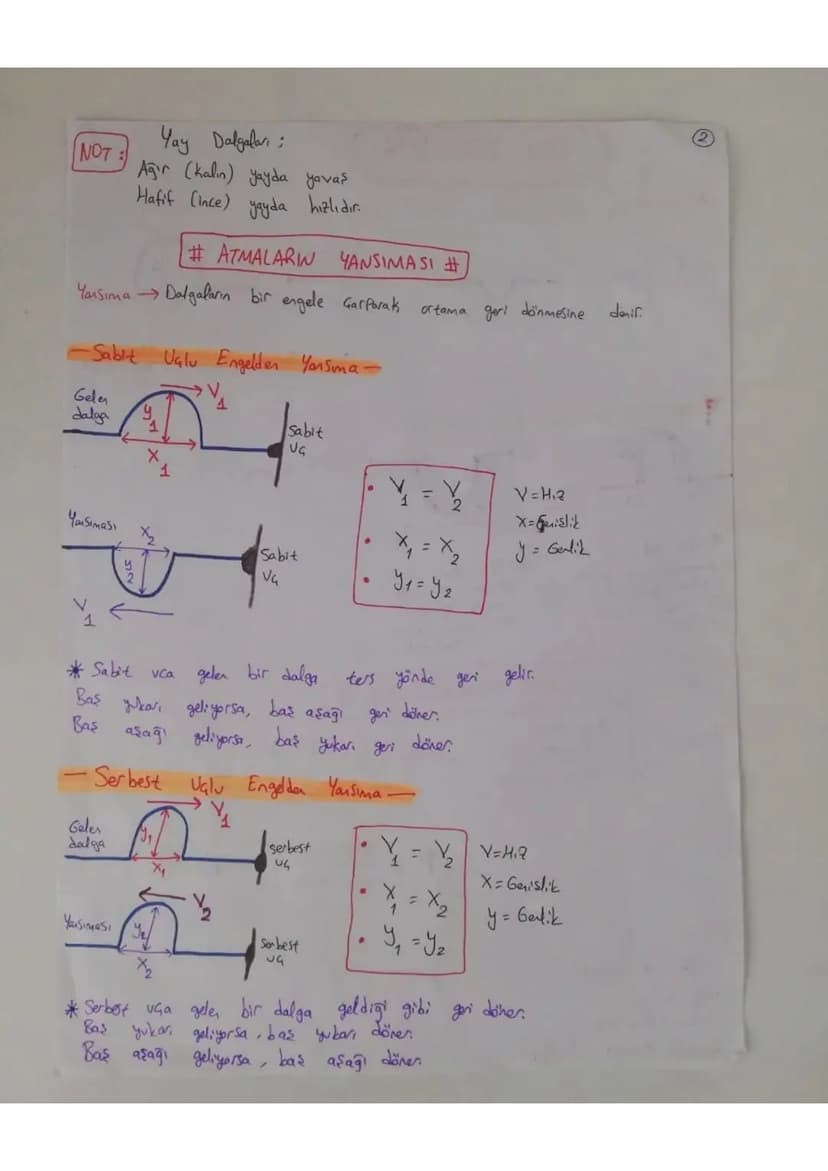 2
NOT:
Yay Dalgaları:
Ağır (kalın) yayda yavaş
Hafif (ince) yayda hızlıdır.
# ATMALARIN YANSIMASI #
Yansıma → Dalgaların bir engele çarparak ortama geri dönmesine denir.
- Sabit Uçlu Engelden Yansıma -
Gelen dalga
V1
y1
X1
Sabit Uç
Yansıması
X2
y2
V1
Sabit Uç
• V1 = V2
• X1 = X2
• y1 = y2
V = Hız
X = Genişlik
y = Genlik
* Sabit uca gelen bir dalga ters yönde geri gelir.
Baş yukarı geliyorsa, baş aşağı geri döner.
Baş aşağı geliyorsa, baş yukarı geri döner.
- Serbest Uçlu Engelden Yansıma -
Gelen dalga
V1
y1
X1
serbest uç
Yansıması
V2
y2
X2
Serbest uç
• V1 = V2
• X1 = X2
• y1 = y2
V = Hız
X = Genişlik
y = Genlik
* Serbest uça gelen bir dalga geldiği gibi geri döner.
Baş yukarı geliyorsa, baş yukarı döner.
Baş aşağı geliyorsa, baş aşağı döner.